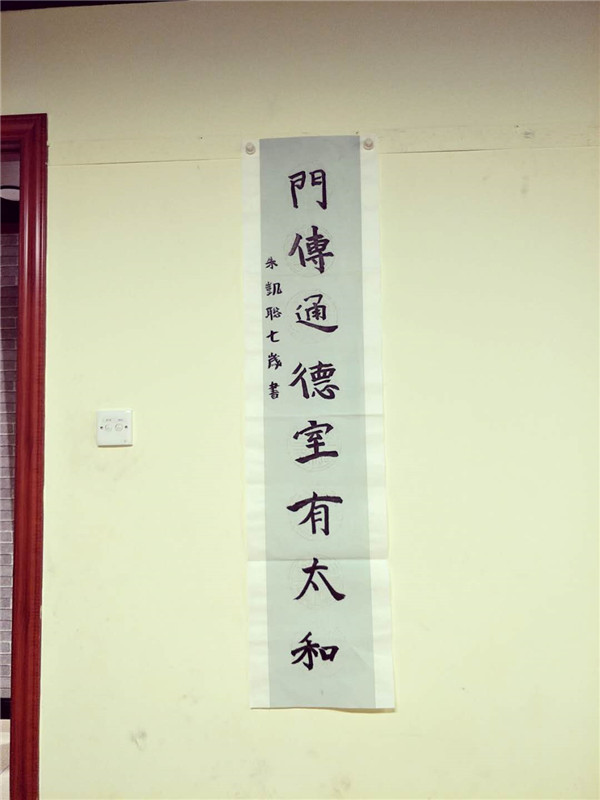 門傳通德室有太和
朱凱聡七歲書